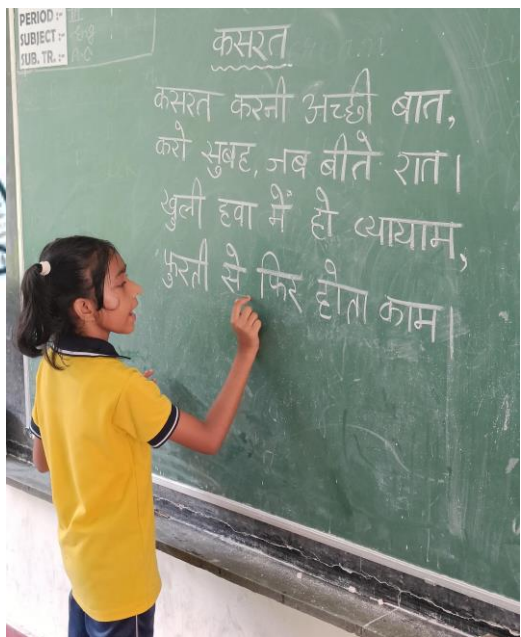 PERIOD :-
SUBJECT :-
SUB. TR. :-
कसरत
कसरत करनी अच्छी बात,
करो सुबह, जब बीते रात।
खुली हवा में हो व्यायाम,
फुरती से फिर होता काम।